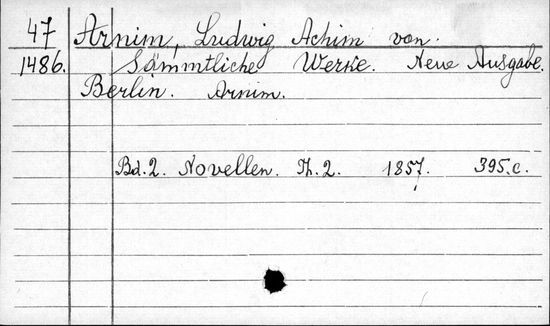 47 Arnim, Ludwig Achim von.
1486. Sämmtliche Werke. Neue Ausgabe.
Berlin. Arnim.
Bd. 2. Novellen. Th. 2. 1857. 395.c.